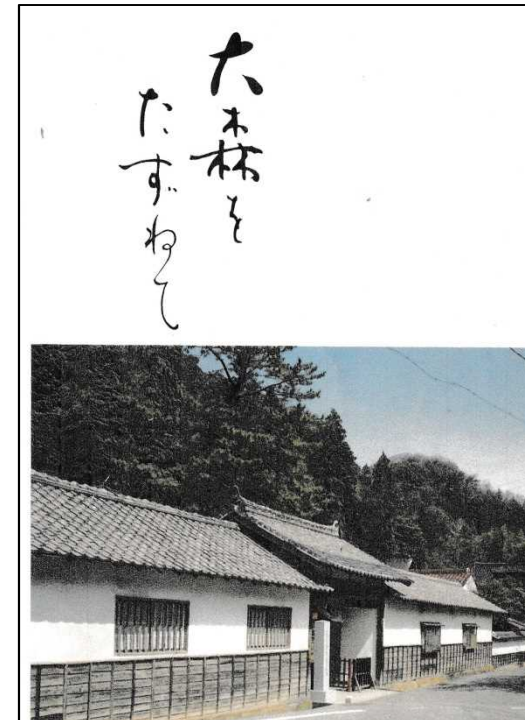 大森を
たずねて